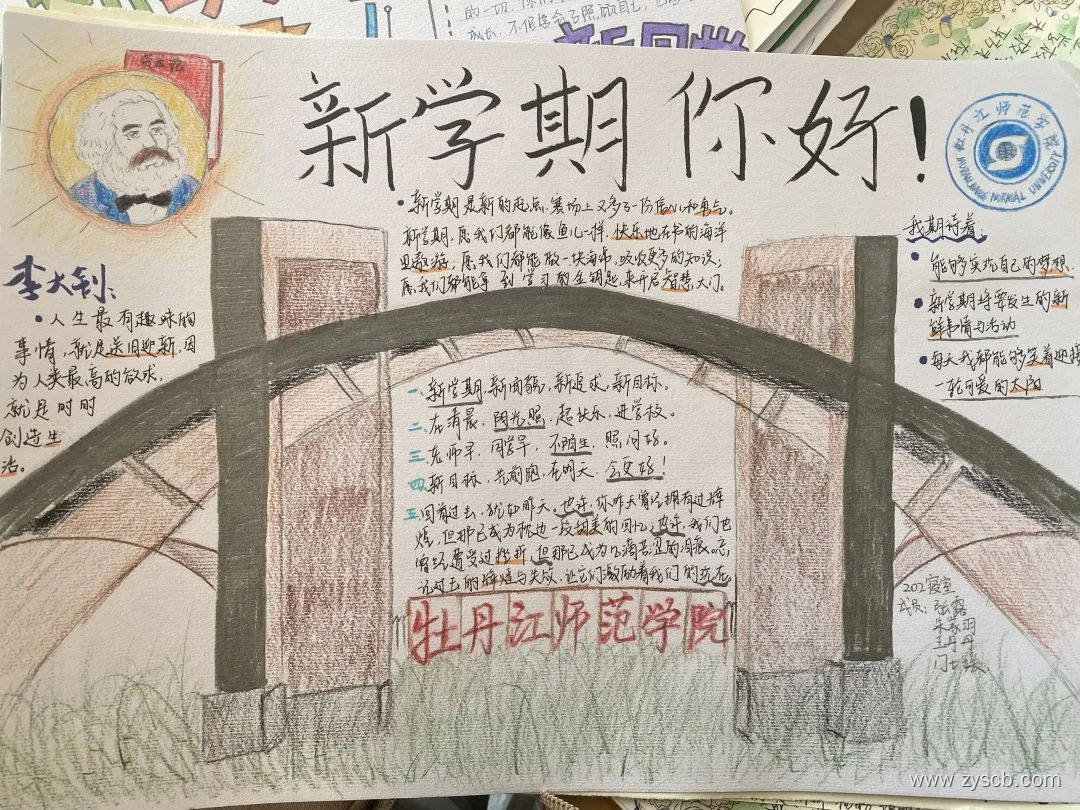 新学期你好!
牡丹江师范学院
MUDANJIANG NORMAL UNIVERSITY
李大钊:
•人生最有趣味的
事情,就是送旧迎新,因
为人类最高的欲求,
就是时时
创造生
活。
•新学期是新的起点,赛场上又多了一份信心和勇气。
新学期,愿我们都能像鱼儿一样,快乐地在书的海洋
里遨游;愿我们都能做一块海绵,吸收更多的知识;
愿我们都能拿到学习的金钥匙,来开启智慧大门。
我期待着:
•能够实现自己的梦想
•新学期将要发生的新
鲜事情与活动
•每天我都能够笑着迎接
一轮可爱的太阳
一、新学期,新面貌,新追求,新目标。
二、在清晨,阳光照,起快乐,进学校。
三、老师早,同学早,不陌生,照问好。
四、新目标,先前跑,在明天,会更好!
五、回首过去,犹如昨天,也许,你昨天曾经拥有过辉
煌,但那已成为枕边一段甜美的回忆;也许,我们也
曾经遭受过挫折,但那已成为几滴苦涩的泪痕。忘
记过去的辉煌与失败,让它们激励着我们的现在。
牡丹江师范学院
202寝室
成员:张露
王丹丹
www.zyscb.com